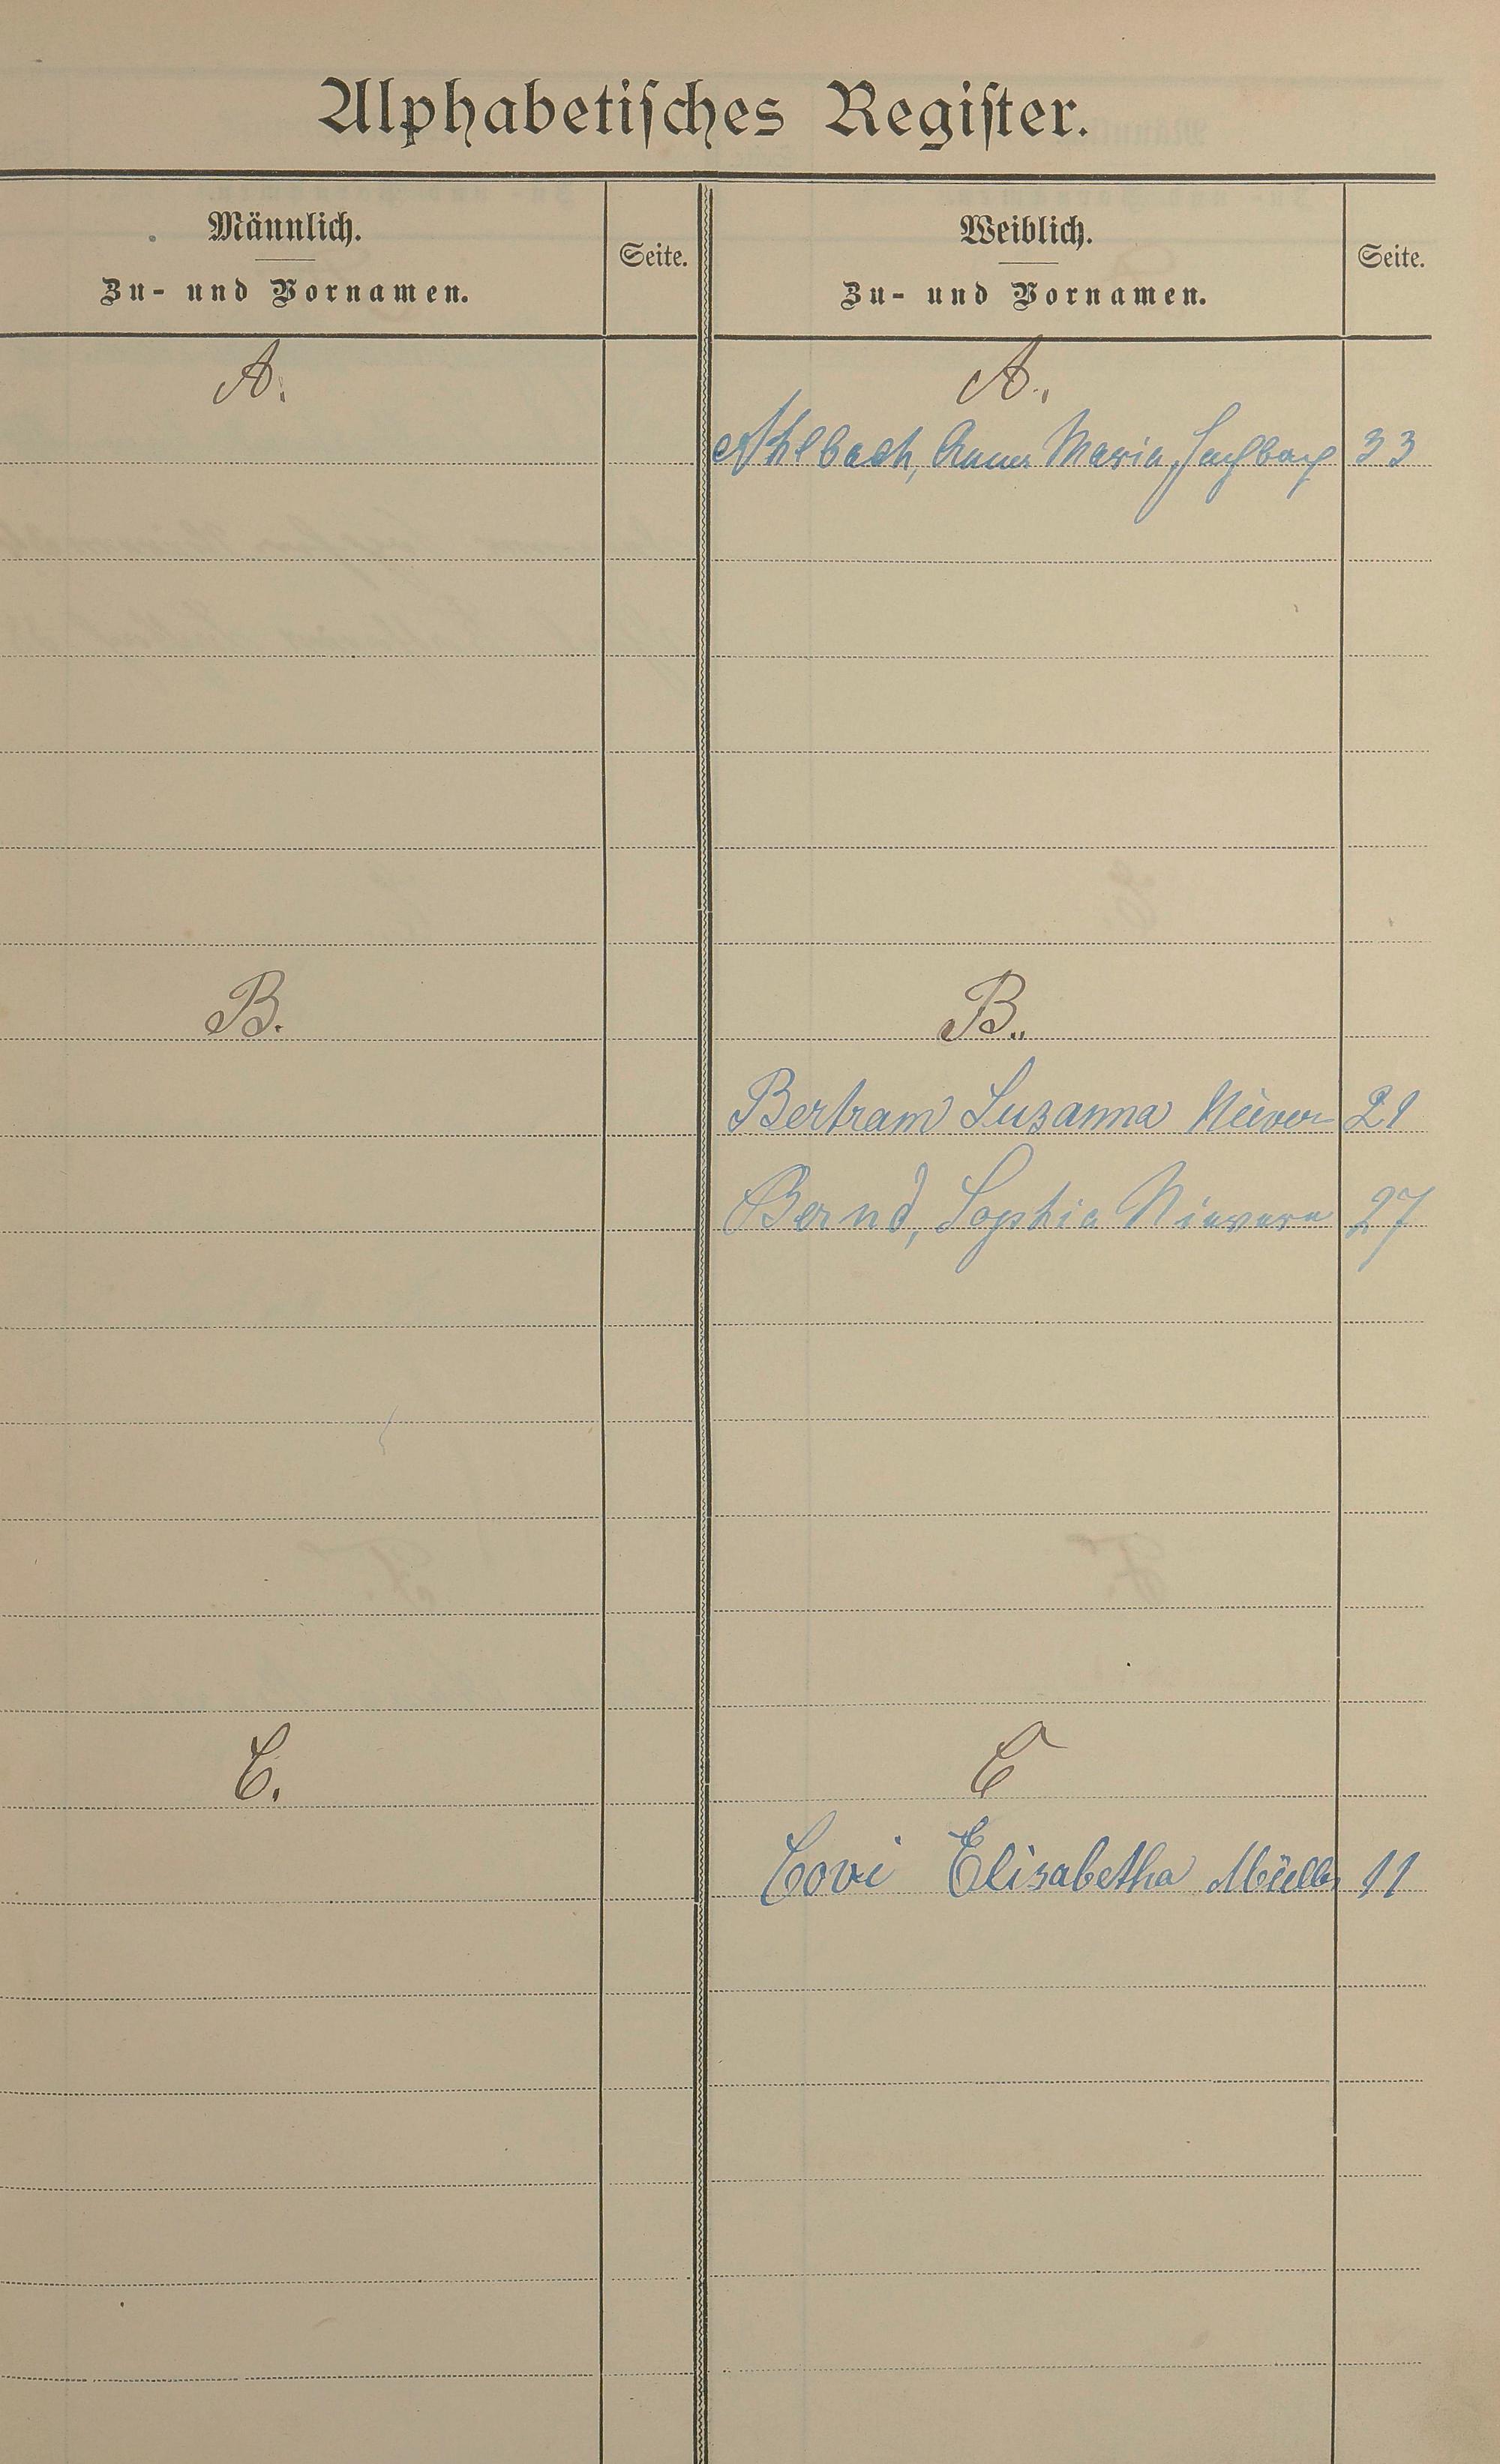 Alphabetisches Register.
Männlich.
Zu- und Vornamen.
Seite.
Weiblich.
Zu- und Vornamen.
Seite.
A.
A.
Ahlbach, Anna Maria, 33
B.
B.
Bertram Suzanna 21
Bernd, Sophia 27
C.
C
Covi Elisabetha Müller 11